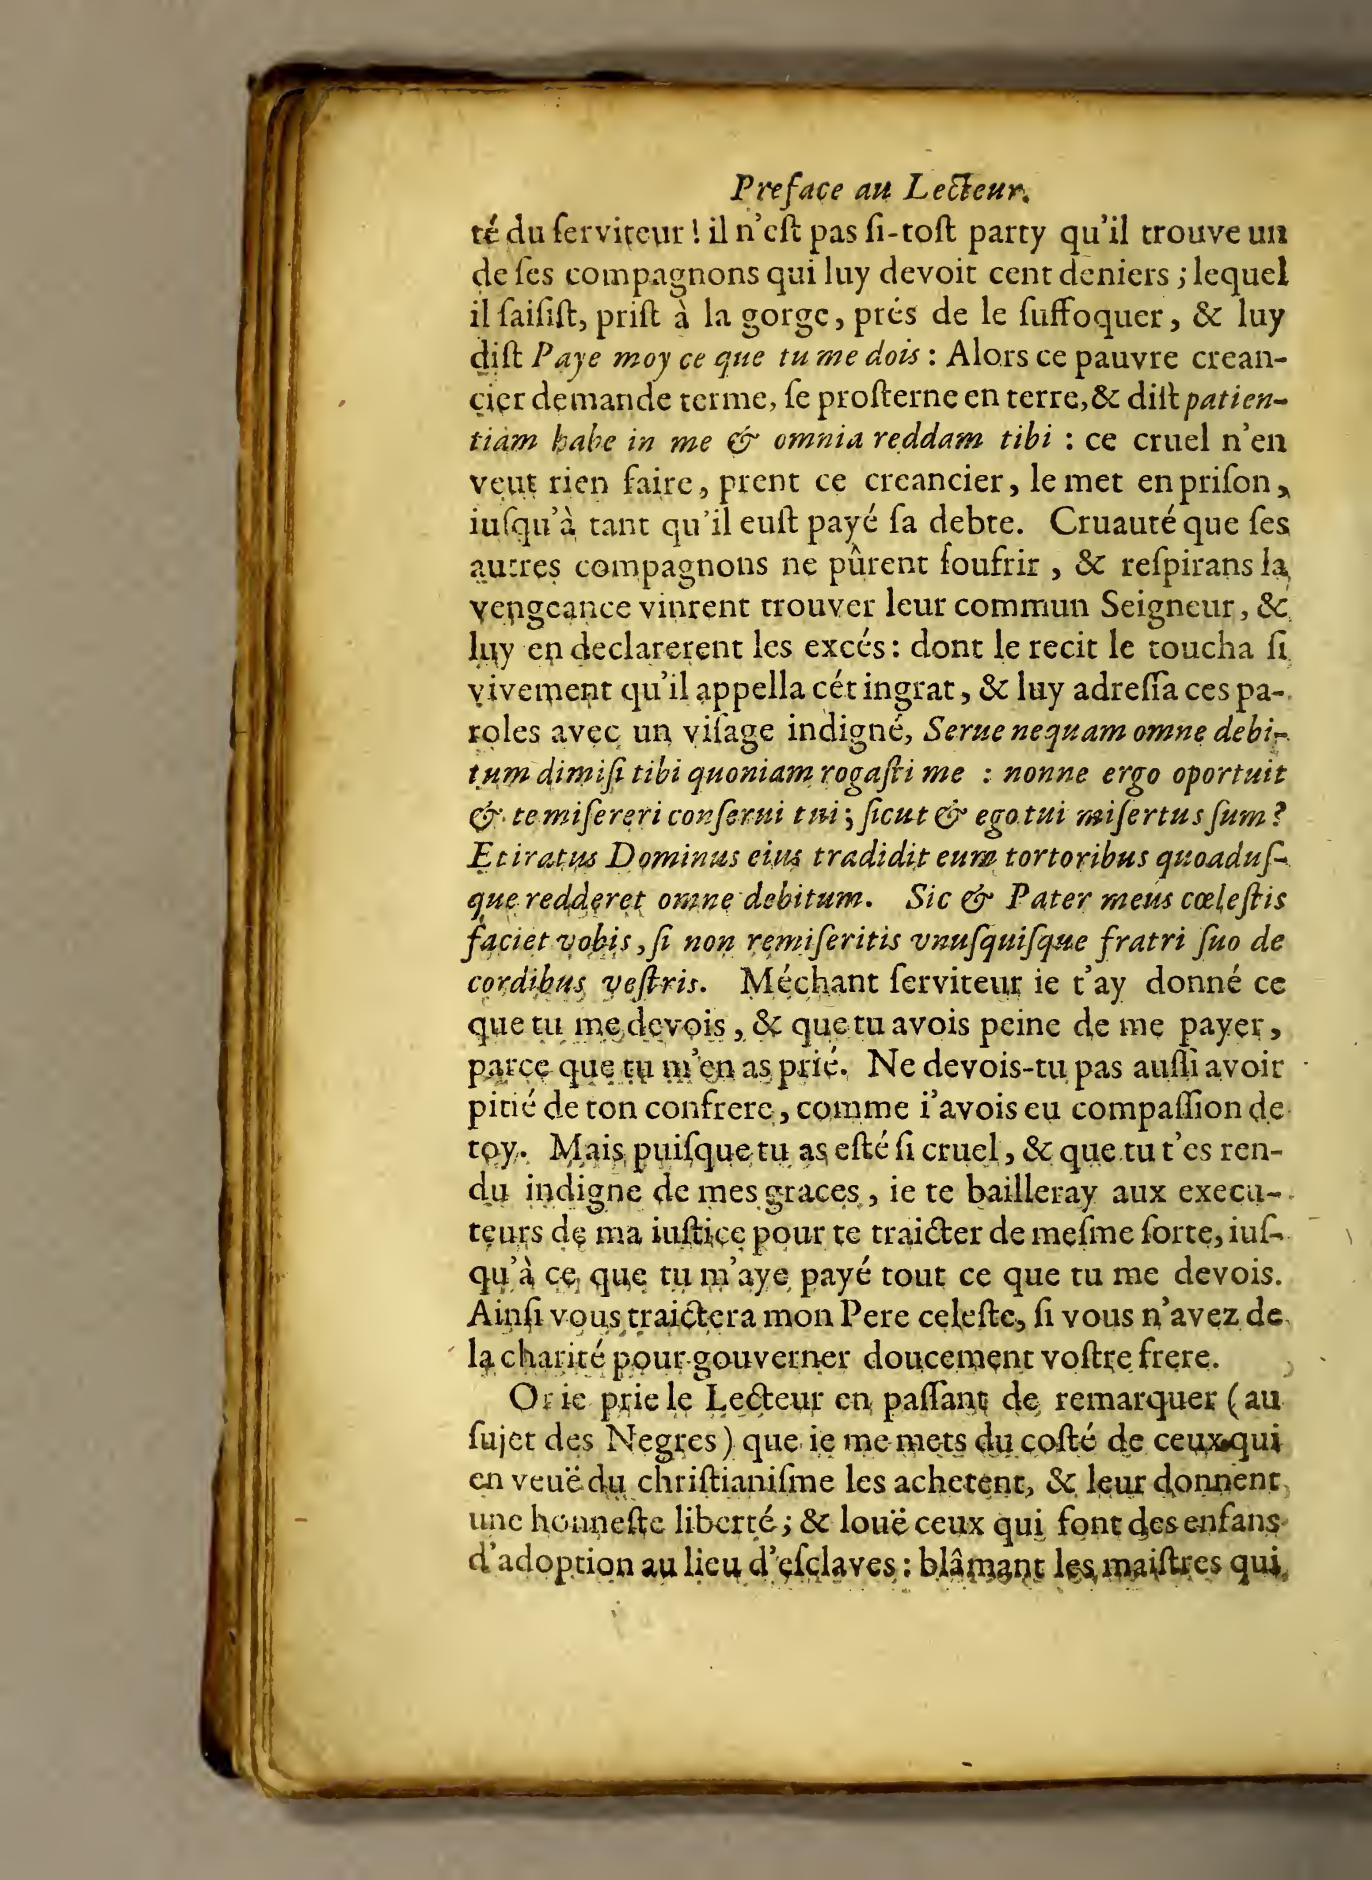 Preface au Lecteur.
té du ſerviteur ! il n'eſt pas ſi-toſt party qu'il trouve un
de ſes compagnons qui luy devoit cent deniers ; lequel
il ſaiſiſt, priſt à la gorge, prés de le ſuffoquer, & luy
diſt Paye moy ce que tu me dois : Alors ce pauvre crean-
cier demande terme, ſe proſterne en terre, & diſt patien-
tiam habe in me & omnia reddam tibi : ce cruel n'en
veut rien faire, prent ce creancier, le met en priſon,
iuſqu'à tant qu'il euſt payé ſa debte. Cruauté que ſes
autres compagnons ne pûrent ſoufrir, & reſpirans la
vengeance vinrent trouver leur commun Seigneur, &
luy en declarerent les excés : dont le recit le toucha ſi
vivement qu'il appella cét ingrat, & luy adreſſa ces pa-
roles avec un viſage indigné, Serue nequam omne debi-
tum dimiſi tibi quoniam rogaſti me : nonne ergo oportuit
& te miſereri conſerui tui ; ſicut & ego tui miſertus ſum ?
Et iratus Dominus eius tradidit eum tortoribus quoaduſ-
que redderet omne debitum. Sic & Pater meus cœleſtis
faciet vobis, ſi non remiſeritis vnuſquiſque fratri ſuo de
cordibus veſtris. Méchant ſerviteur ie t'ay donné ce
que tu me devois, & que tu avois peine de me payer,
parce que tu m'en as prié. Ne devois-tu pas auſſi avoir
pitié de ton confrere, comme i'avois eu compaſſion de
toy. Mais puiſque tu as eſté ſi cruel, & que tu t'es ren-
du indigne de mes graces, ie te bailleray aux execu-
teurs de ma iuſtice pour te traicter de meſme ſorte, iuſ-
qu'à ce que tu m'aye payé tout ce que tu me devois.
Ainſi vous traictera mon Pere celeſte, ſi vous n'avez de
la charité pour gouverner doucement voſtre frere.
Or ie prie le Lecteur en paſſant de remarquer ( au
ſujet des Negres ) que ie me mets du coſté de ceux qui
en veuë du chriſtianiſme les achetent, & leur donnent
une honneſte liberté ; & louë ceux qui font des enfans
d'adoption au lieu d'eſclaves : blâmant les maiſtres qui